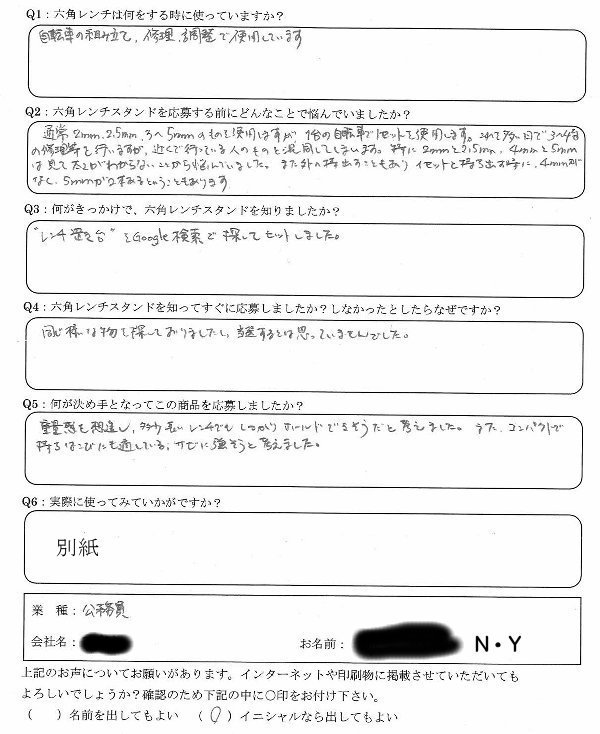 Q1：六角レンチは何をする時に使っていますか？
自転車の組み立て、修理、調整で使用しています
Q2：六角レンチスタンドを応募する前にどんなことで悩んでいましたか？
通常2mm、2.5mm、3〜5mmのものを使用しますが、1台の自転車で1セットを使用します。これを多い日で3〜4台
の修理等を行いますが、近くで行っている人のものと混同してしまいます。特に2mmと2.5mm、4mmと5mm
は見て太さがわからないことから悩んでいました。また外へ持出すこともあり1セットを持ち出す時に、4mmが
なく、5mmが2本あるということもあります
Q3：何がきっかけで、六角レンチスタンドを知りましたか？
"レンチ置き台"をGoogle検索で探してヒットしました。
Q4：六角レンチスタンドを知ってすぐに応募しましたか？しなかったとしたらなぜですか？
同じ様な物を探しておりましたし、当選するとは思っていませんでした。
Q5：何が決め手となってこの商品を応募しましたか？
重量感も想速し、多少長いレンチでもしっかりホールドできそうだと考えました。また、コンパクトで
持ちはこびにも適している、サビに強そうと考えました。
Q6：実際に使ってみていかがですか？
別紙
業 種：公務員
会社名：
お名前： N・Y
上記のお声についてお願いがあります。インターネットや印刷物に掲載させていただいても
よろしいでしょうか？確認のため下記の中に○印をお付け下さい。
（ ）名前を出してもよい （○）イニシャルなら出してもよい